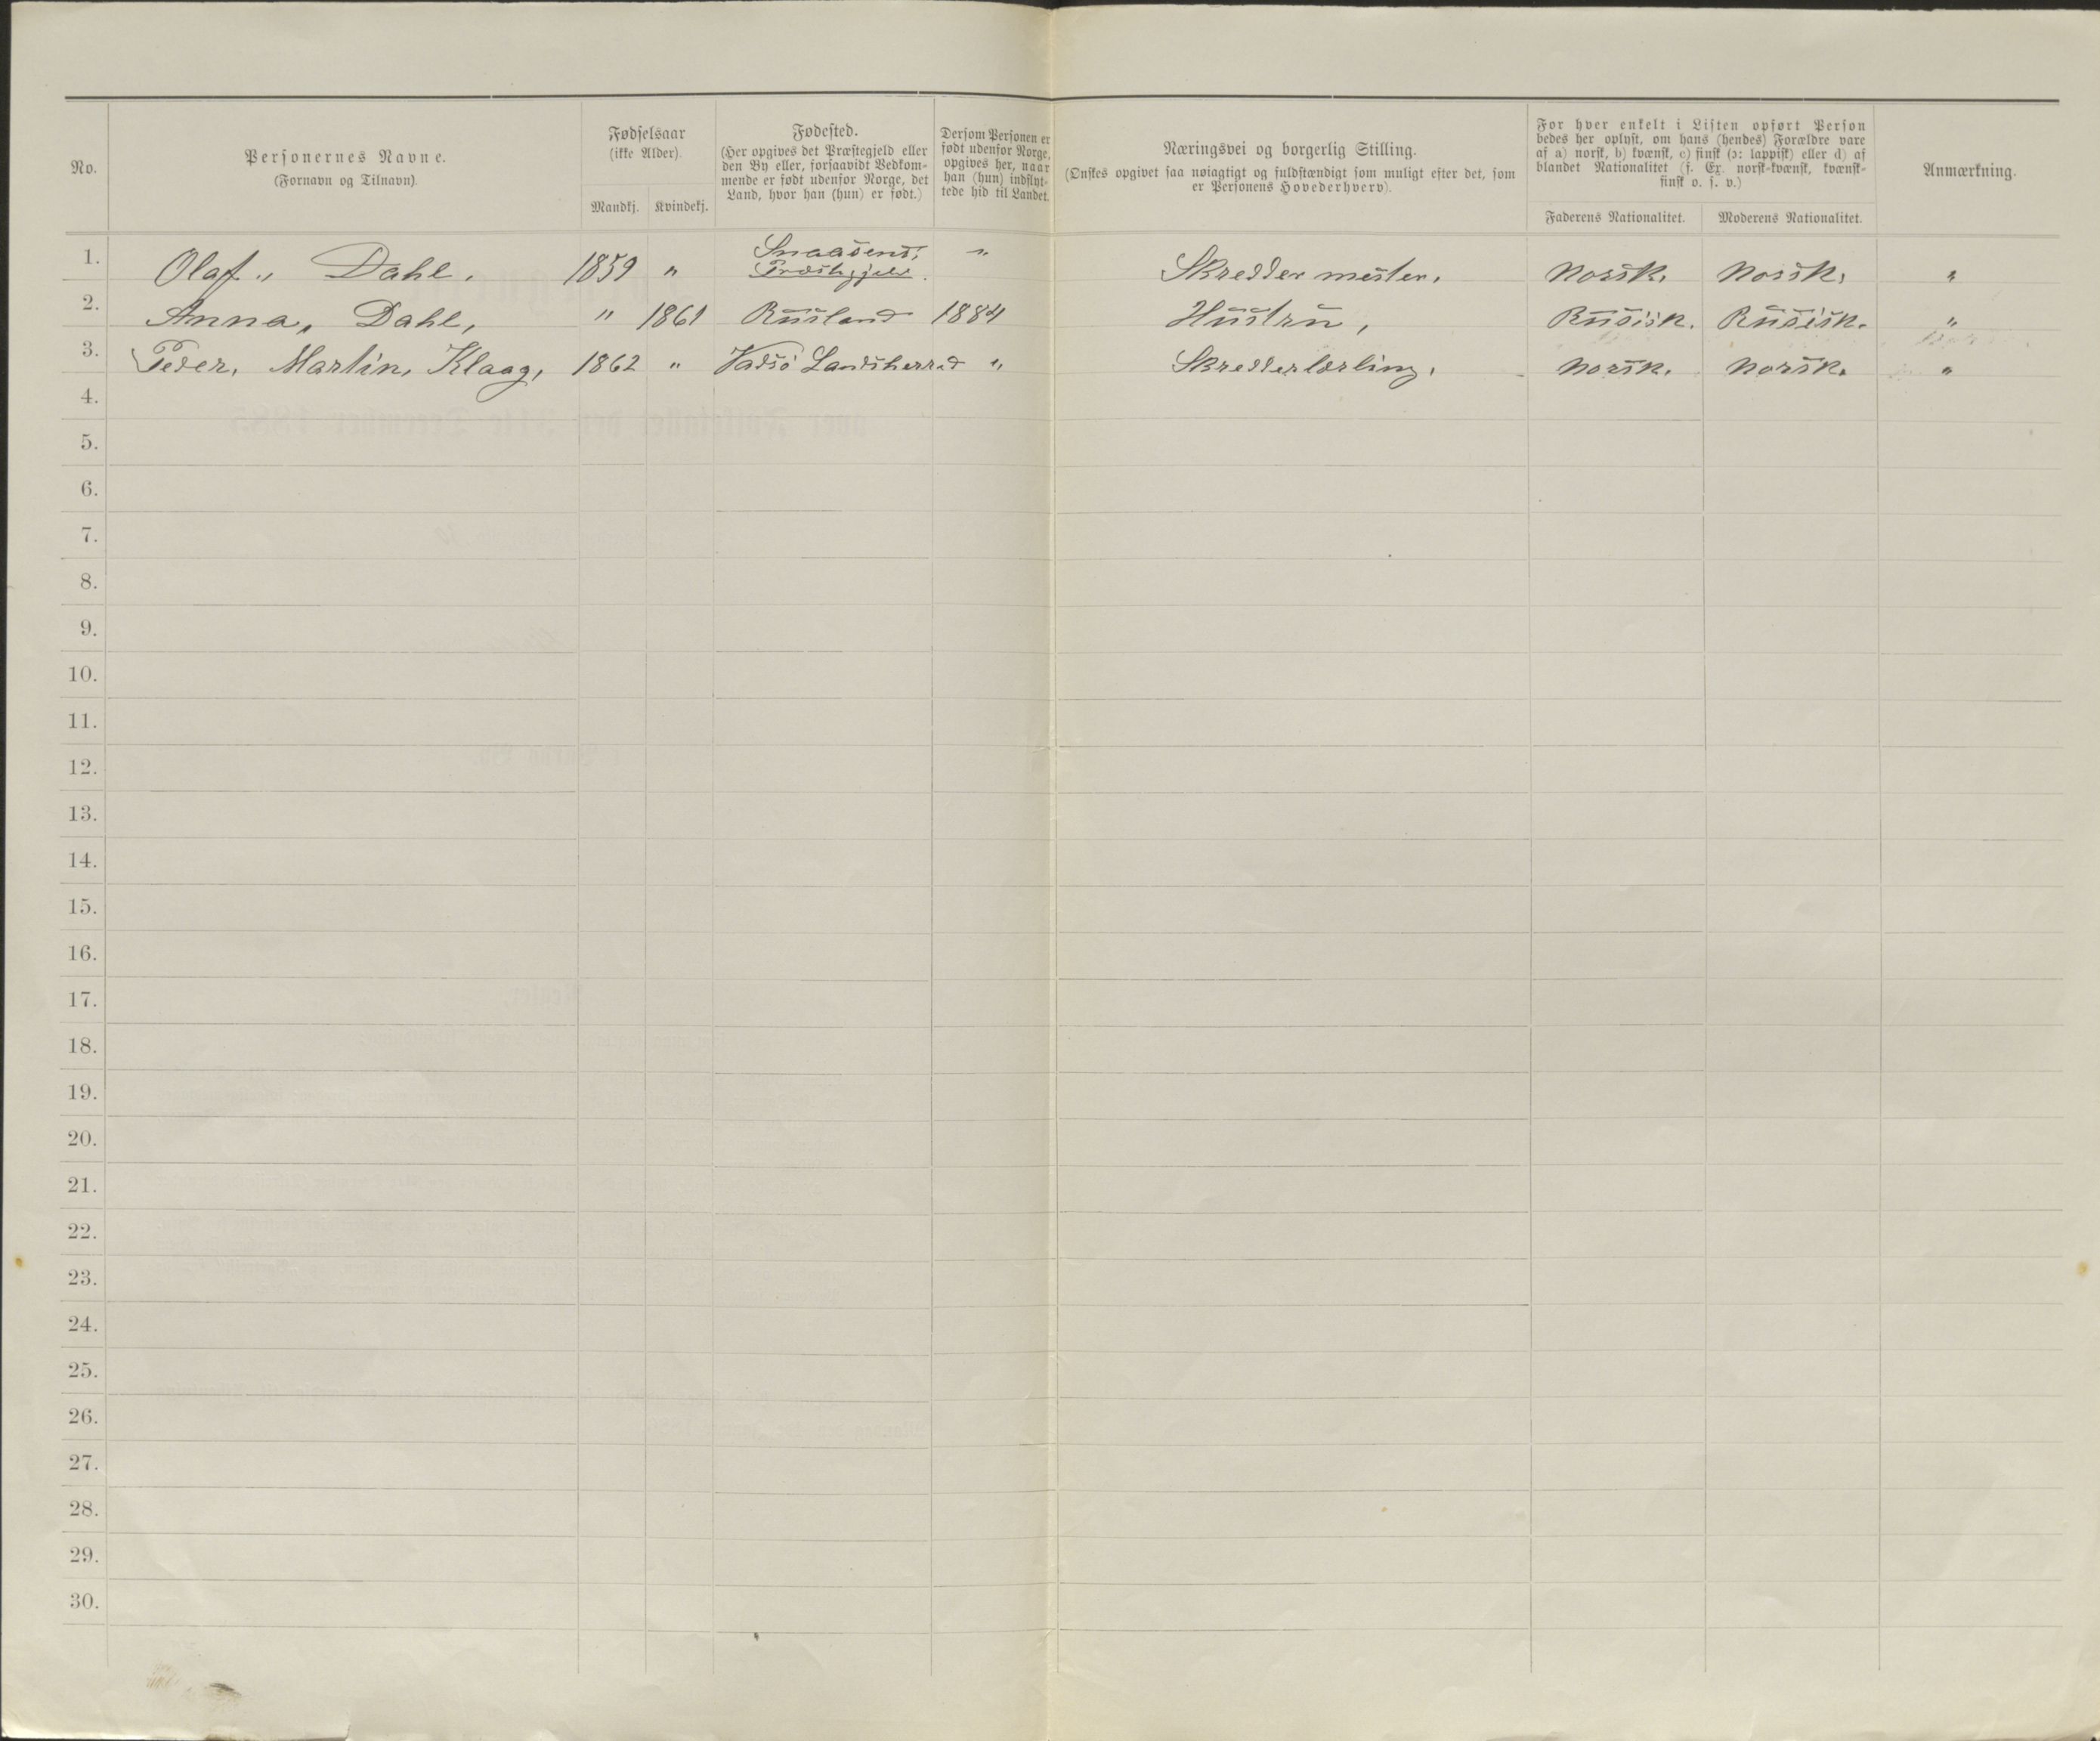 No.
Personernes Navne.
(Fornavn og Tilnavn).
Fødselsaar
(ikke Alder).
Mandkj. Kvindekj.
Fødested.
(Her opgives det Præstegjeld eller
den By eller, forsaavidt Vedkom-
mende er født udenfor Norge, det
Land, hvor han (hun) er født.)
Dersom Personen er
født udenfor Norge,
opgives her, naar
han (hun) indflyt-
tede hid til Landet.
Næringsvei og borgerlig Stilling.
(Ønskes opgivet saa nøiagtigt og fuldstændigt som muligt efter det, som
er Personens Hovederhverv).
For hver enkelt i Listen opført Person
bedes her oplyst, om hans (hendes) Forældre vare
af a) norsk, b) kvænsk, c) finsk (ɔ: lappisk) eller d) af
blandet Nationalitet (f. Ex. norsk-kvænsk, kvænsk-
finsk o. s. v.)
Faderens Nationalitet. Moderens Nationalitet.
Anmærkning.
1. Olaf „ Dahl. 1859 „ Snaasens „ Skreddermester. Norsk. Norsk. „
Præstegjeld.
2. Anna, Dahl, „ 1861 Rusland 1884 Hustru, Rusisk. Rusisk. „
3. Peder, Martin, Klaag, 1862 „ Vadsö Landsherred „ Skredderlærling. Norsk. Norsk. „
4.
5.
6.
7.
8.
9.
10.
11.
12.
13.
14.
15.
16.
17.
18.
19.
20.
21.
22.
23.
24.
25.
26.
27.
28.
29.
30.